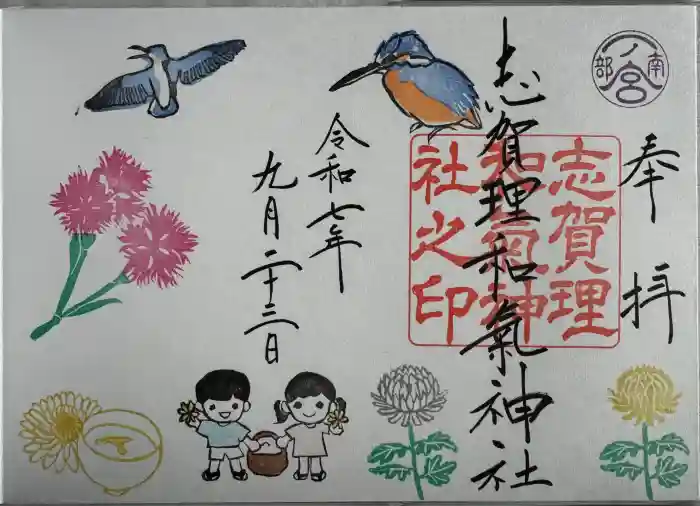 奉拝
南部一ノ宮
志賀理和氣神社
志賀理
和氣神
社之印
令和七年
九月二十三日